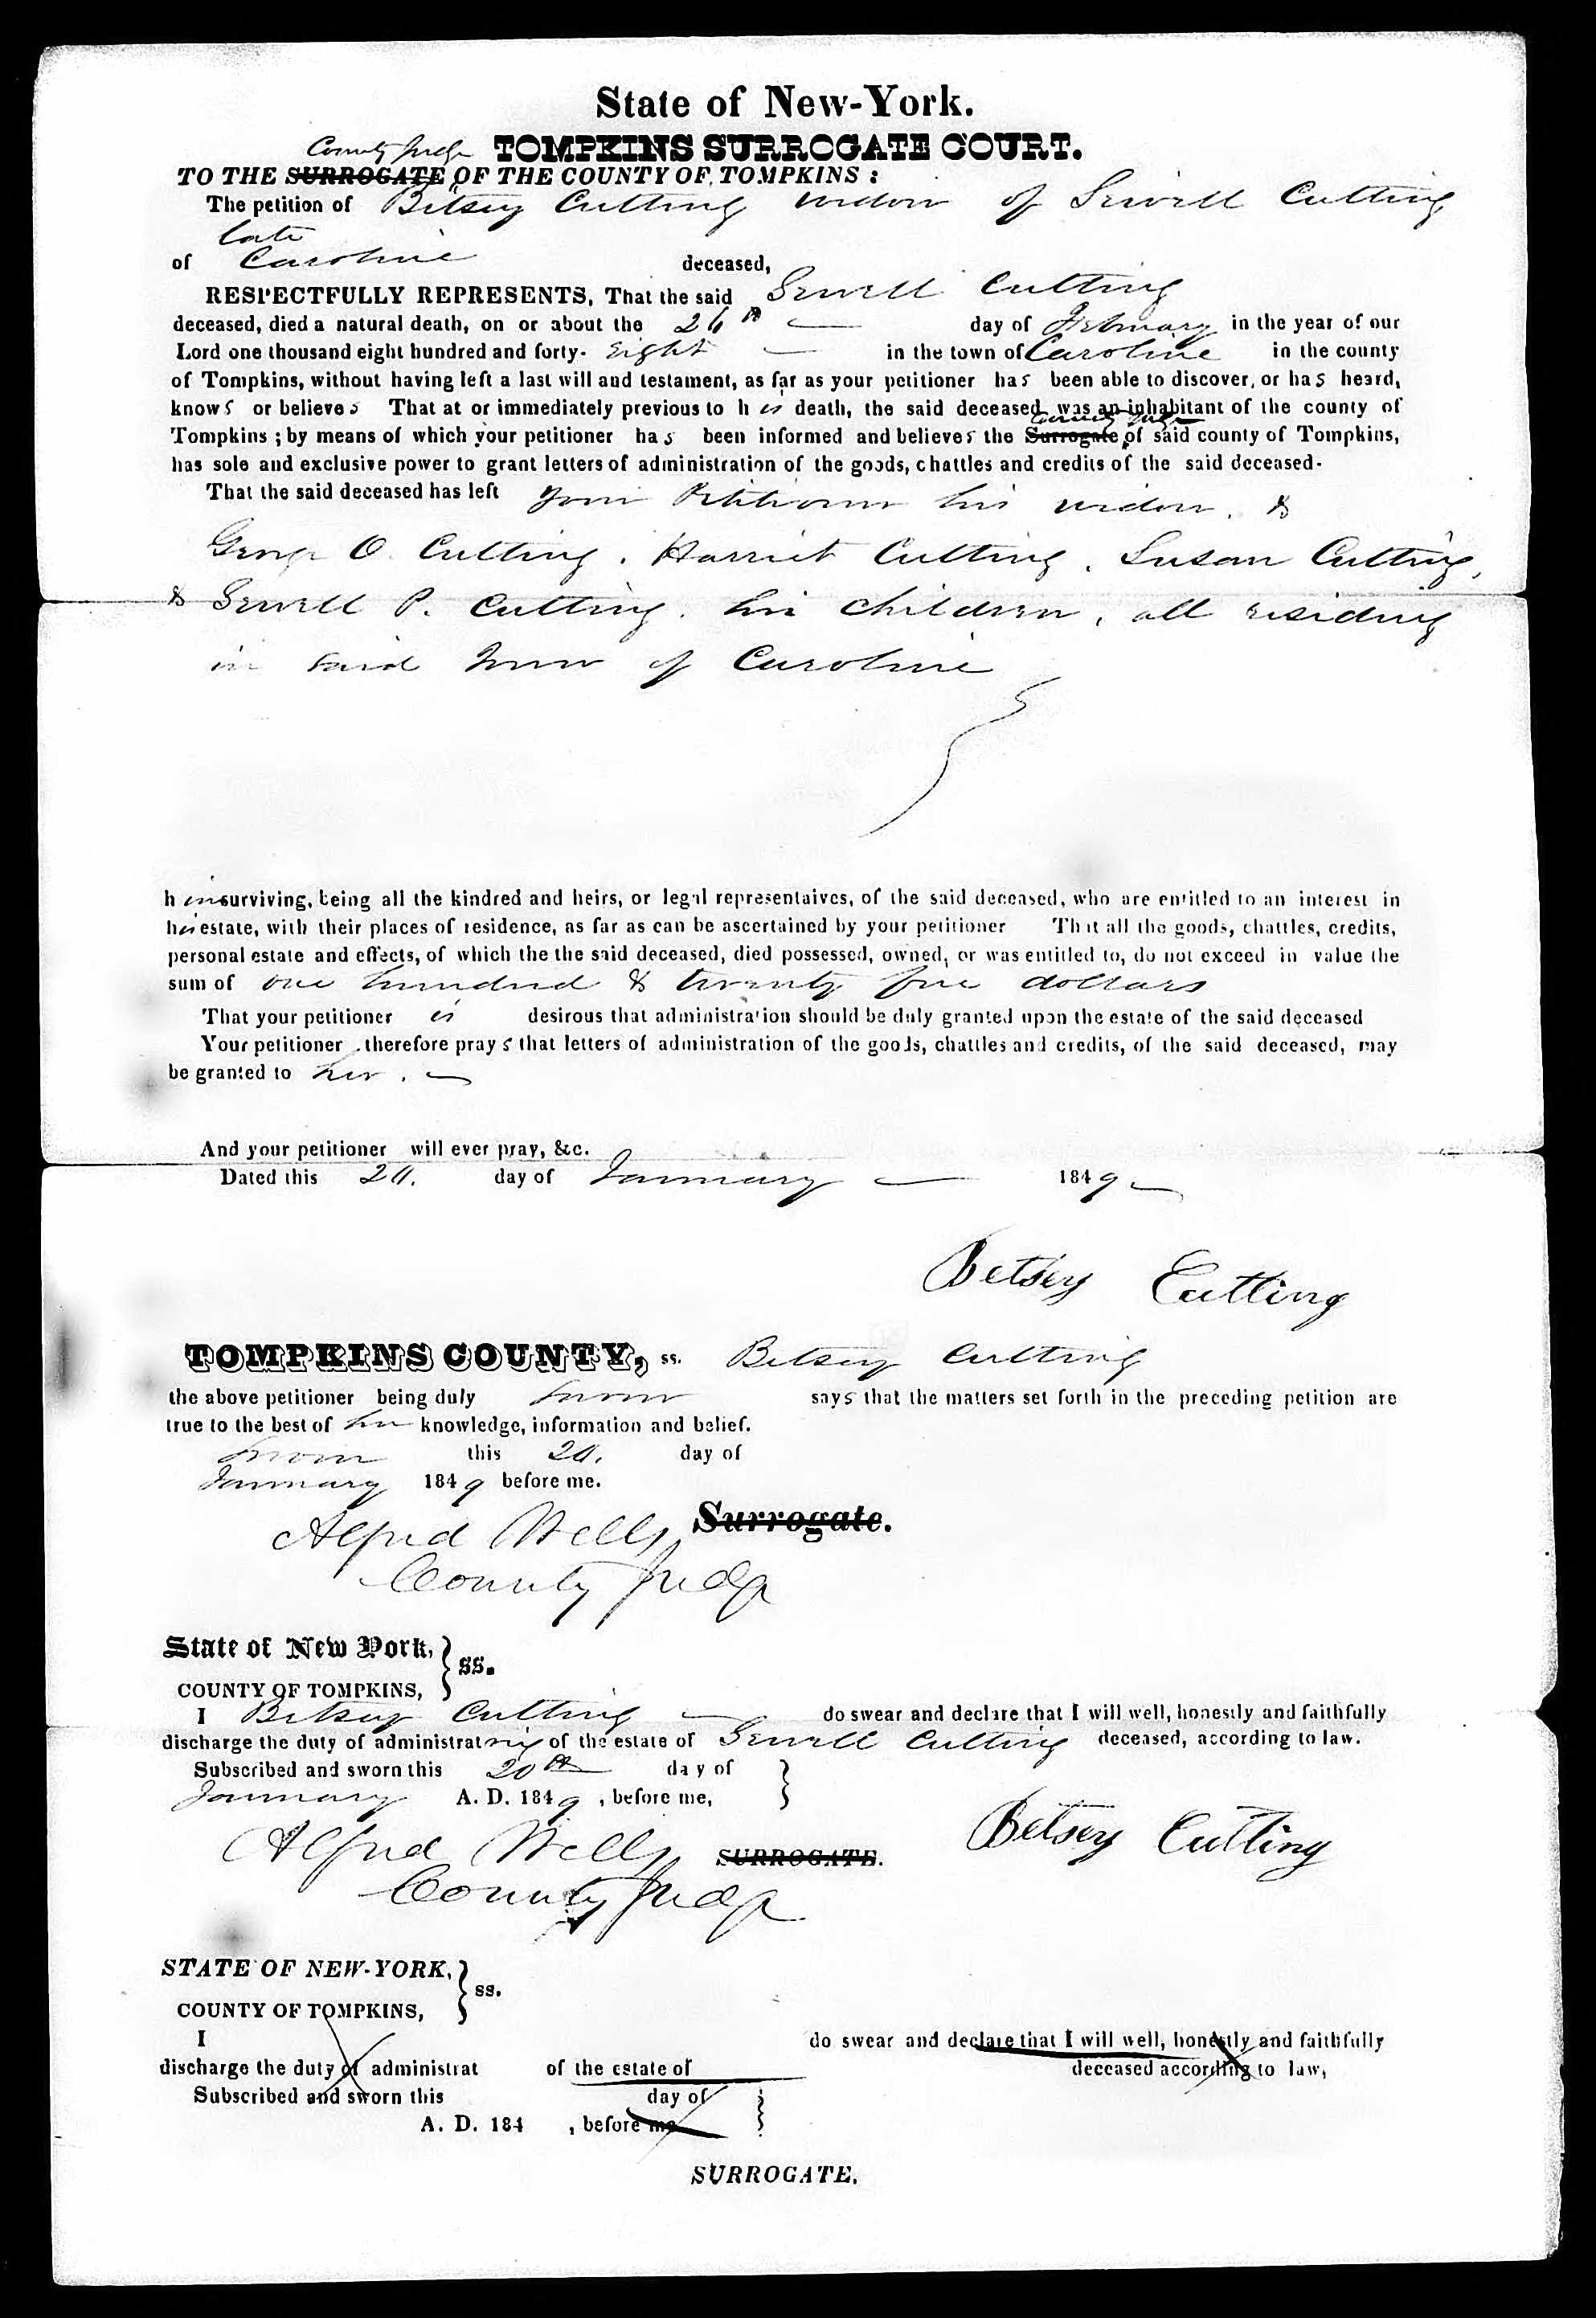 State of New-York.
County Judge TOMPKINS SURROGATE COURT.
TO THE SURROGATE OF THE COUNTY OF TOMPKINS :
The petition of Betsey Cutting widow of Sewell Cutting
late
of Caroline deceased,
RESPECTFULLY REPRESENTS, That the said Sewell Cutting
deceased, died a natural death, on or about the 26th day of February in the year of our
Lord one thousand eight hundred and forty- Eight in the town of Caroline in the county
of Tompkins, without having left a last will and testament, as far as your petitioner has been able to discover, or has heard,
knows or believes That at or immediately previous to his death, the said deceased was an inhabitant of the county of
County Judge
Tompkins ; by means of which your petitioner has been informed and believes the Surrogate of said county of Tompkins,
has sole and exclusive power to grant letters of administration of the goods, chattles and credits of the said deceased-
That the said deceased has left your Petitioner his widow, &
George O Cutting, Harriet Cutting, Susan Cutting,
& Sewell P. Cutting, his children, all residing
in said Town of Caroline
him surviving, being all the kindred and heirs, or legal representaivcs, of the said deceased, who are entitled to an interest in
his estate, with their places of residence, as far as can be ascertained by your petitioner That all the goods, chattles, credits,
personal estate and effects, of which the the said deceased, died possessed, owned, or was entitled to, do not exceed in value the
sum of one hundred & twenty five dollars
That your petitioner is desirous that administration should be duly granted upon the estate of the said deceased
Your petitioner therefore prays that letters of administration of the goods, chattles and credits, of the said deceased, may
be granted to her.
And your petitioner will ever pray, &c.
Dated this 20. day of January 1849
Betsey Cutting
TOMPKINS COUNTY, ss. Betsey Cutting
the above petitioner being duly sworn says that the matters set forth in the preceding petition are
true to the best of her knowledge, information and belief.
Sworn this 20. day of
January 1849 before me.
Alfred Wells Surrogate.
County Judge
State of New York, } ss.
COUNTY OF TOMPKINS,
I Betsey Cutting do swear and declare that I will well, honestly and faithfully
discharge the duty of administratrix of the estate of Sewell Cutting deceased, according to law.
Subscribed and sworn this 20th day of
January A. D. 1849, before me,
Betsey Cutting
Alfred Wells SURROGATE.
County Judge
STATE OF NEW-YORK, } ss.
COUNTY OF TOMPKINS,
I do swear and declare that I will well, honestly and faithfully
discharge the duty of administrat of the estate of deceased according to law,
Subscribed and sworn this day of
A. D. 184 , before me
SURROGATE.